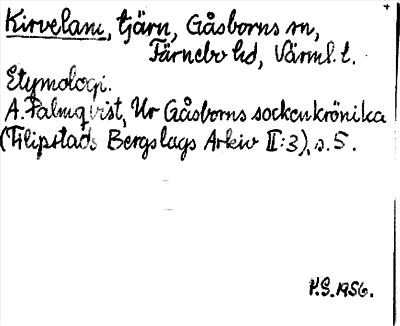 Kirvelam, tjärn, Gåsborns sn,
Färnebo hd, Värml. l.
Etymologi.
A. Palmqvist, Ur Gåsborns sockenkrönika
(Filipstads Bergslags Arkiv II:3), s. 5.
P.S. 1956.